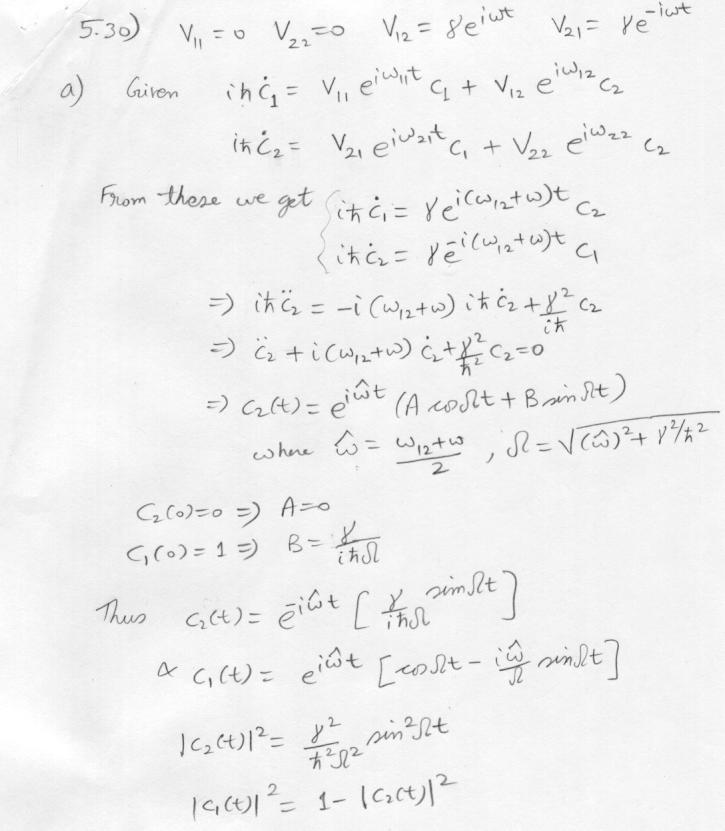 5.30) V₁₁ = 0 V₂₂ = 0 V₁₂ = γe^{iωt} V₂₁ = γe^{-iωt}
a) Given iħċ₁ = V₁₁ e^{iω₁₁t} c₁ + V₁₂ e^{iω₁₂} c₂
iħċ₂ = V₂₁ e^{iω₂₁t} c₁ + V₂₂ e^{iω₂₂} c₂
From these we get { iħċ₁ = γe^{i(ω₁₂+ω)t} c₂
iħċ₂ = γe^{-i(ω₁₂+ω)t} c₁
⇒ iħc̈₂ = -i(ω₁₂+ω) iħċ₂ + γ²/iħ c₂
⇒ c̈₂ + i(ω₁₂+ω) ċ₂ + γ²/ħ² c₂ = 0
⇒ c₂(t) = e^{iω̂t} (A cosΩt + B sinΩt)
where ω̂ = (ω₁₂+ω)/2 , Ω = √((ω̂)² + γ²/ħ²)
c₂(0)=0 ⇒ A=0
c₁(0) = 1 ⇒ B = γ/iħΩ
Thus c₂(t) = e^{-iω̂t} [γ/iħΩ sinΩt]
& c₁(t) = e^{iω̂t} [cosΩt - iω̂/Ω sinΩt]
|c₂(t)|² = γ²/ħ²Ω² sin²Ωt
|c₁(t)|² = 1 - |c₂(t)|²